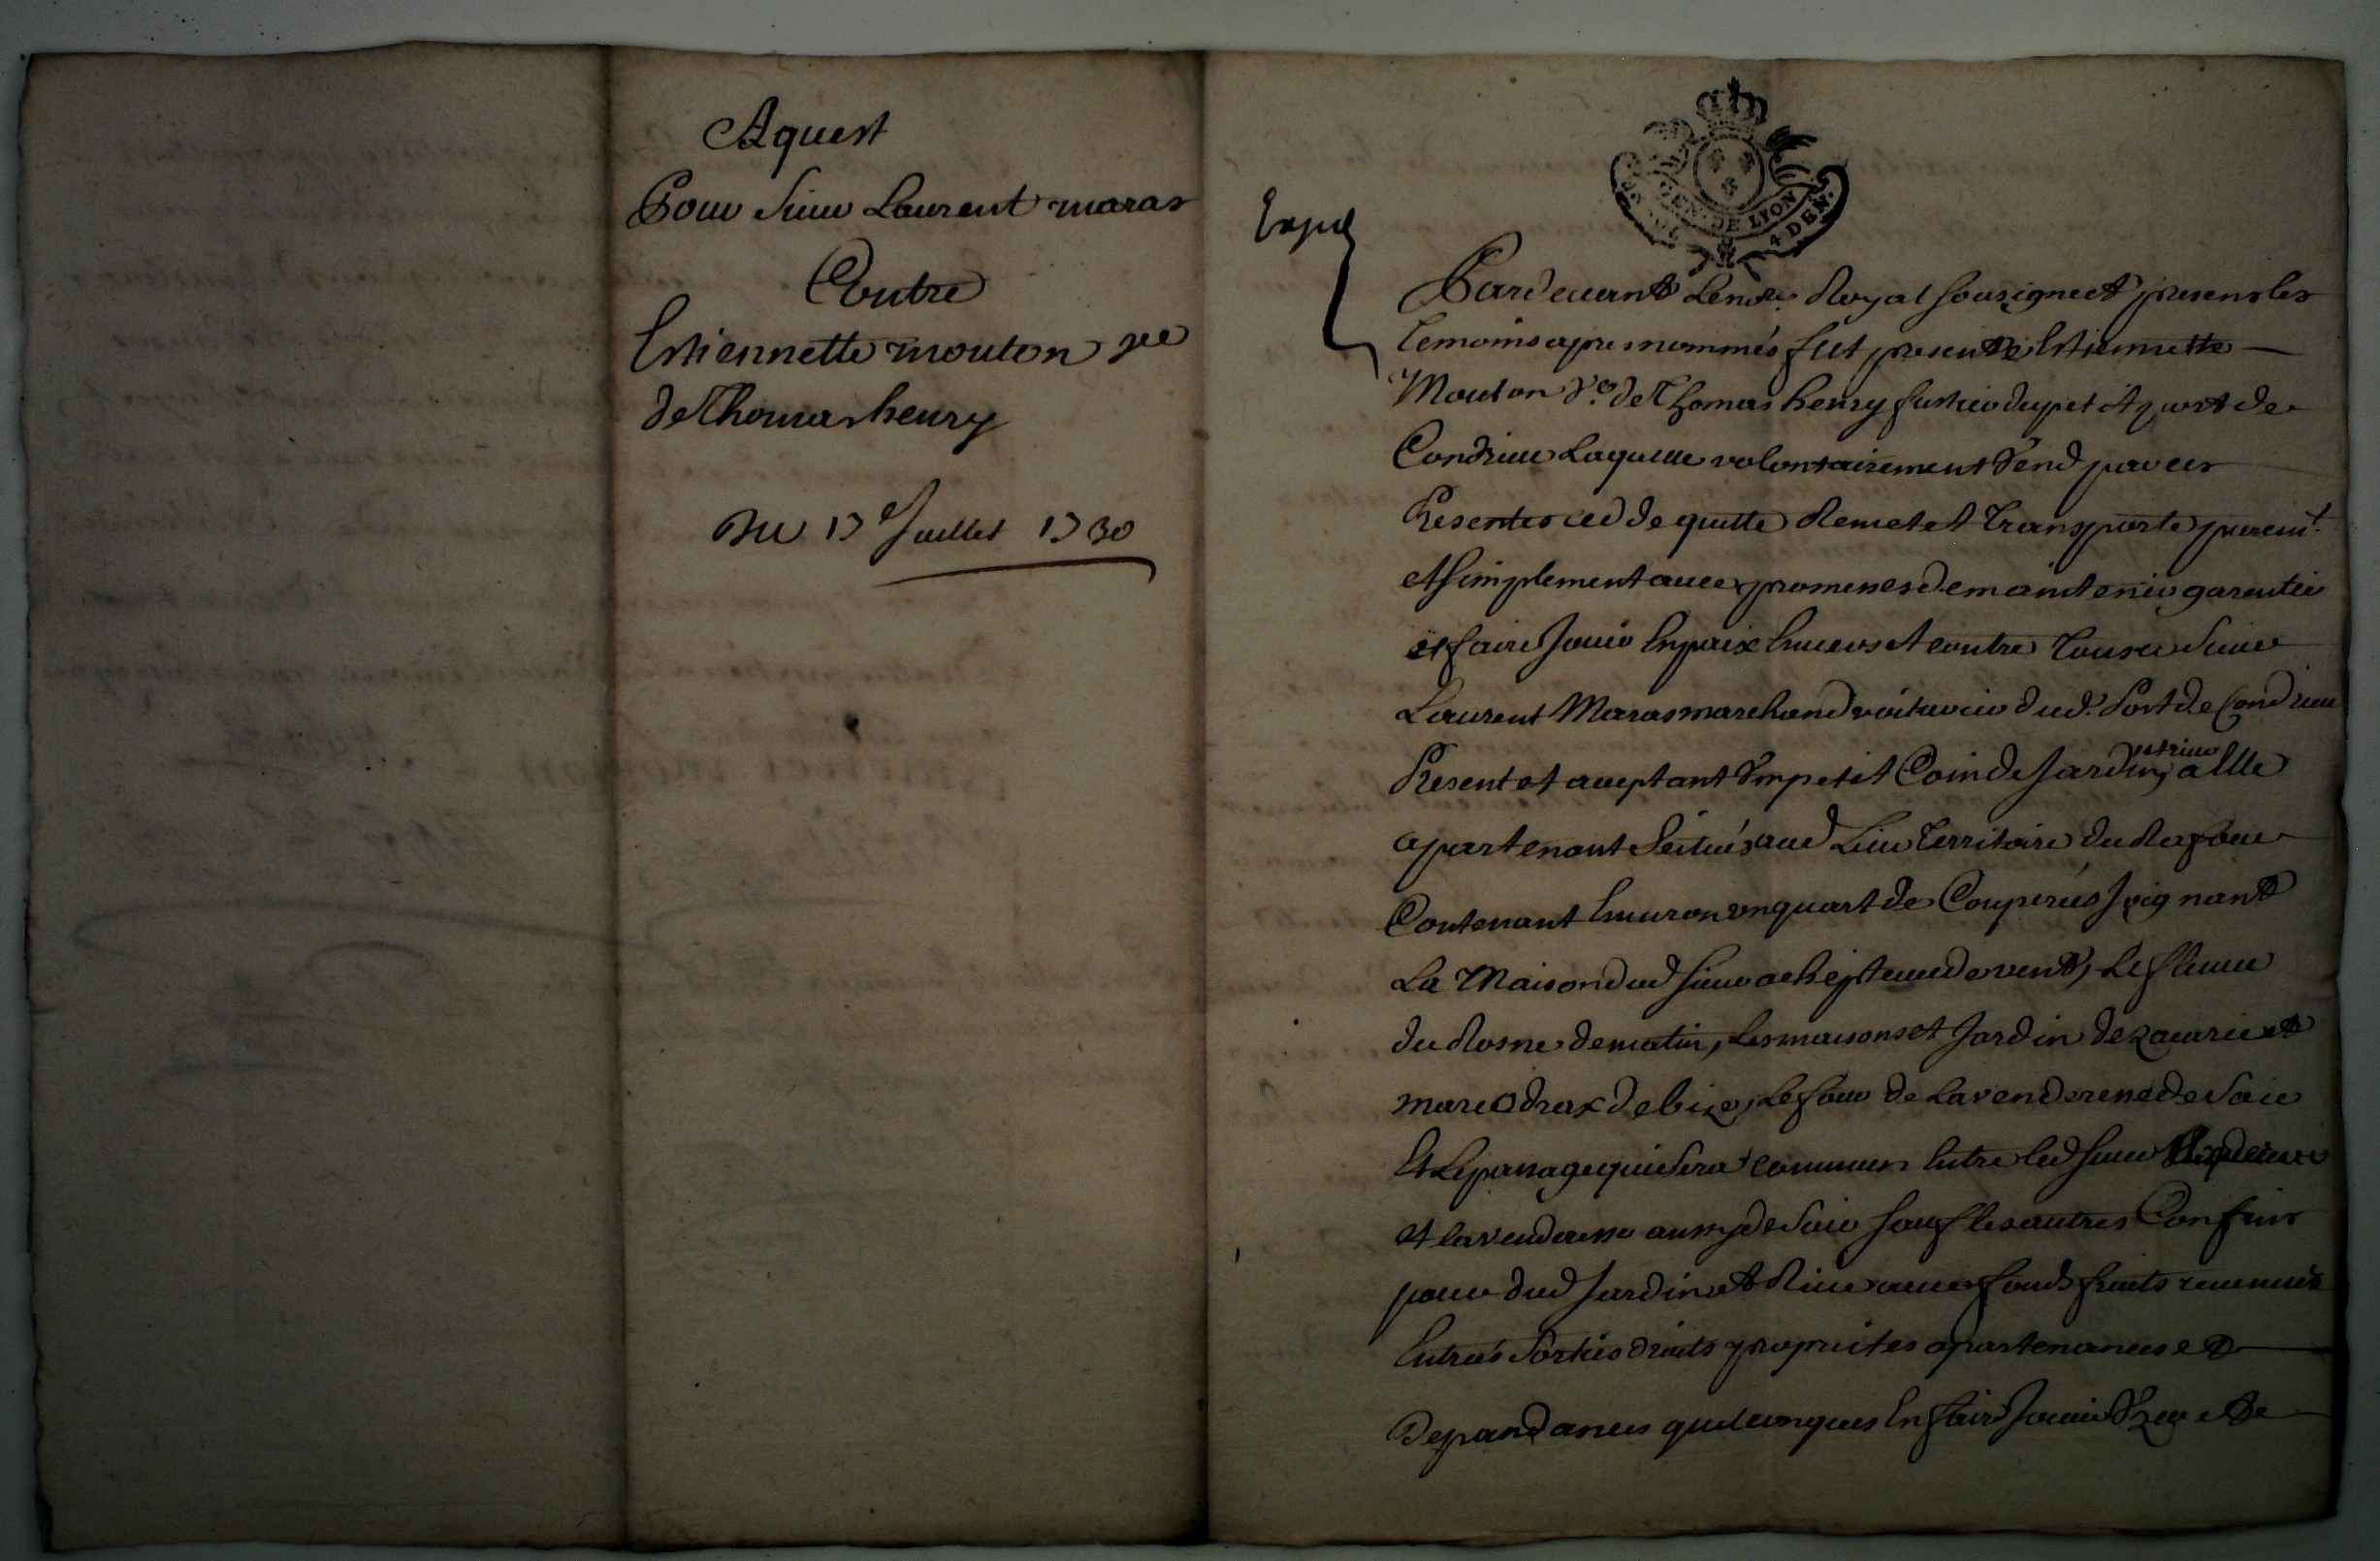 Aquest
Pour Sieur Laurent maras
Contre
Estiennette mouton vee
de Thomas henry
Du 17e Juillet 1730
GEN. DE LYON
4 DEN.
Expié
Pardevant Le no.re Royal sousigné et presens les
temoins apres nommés fut presente Estiennette
Mouton Ve. de Thomas henry fustier du petit port de
Condrieu Laquelle volontairement vend par ces
Presentes cedde quitte Remet et transporte puremt.
et simplement avec promesses de maintenir garentir
et faire Jouir En paix Envers et contre tous a Sieur
Laurent Maras marchand voiturier dud. Port de Condrieu
Present et acceptant Vn petit Coin de Jardin, a Elle
apartenant Scitués aud Lieu territoire du
Contenant Environ un quart de Couperée Joignant
La Maison dud sieur achepteur de vent, Le fleuve
du Rosne de matin, Les maisons et Jardin de et
marc odrax de bize, Le four de La venderesse de Soir
Et Le passage qui Sera commun Entre led sieur
et la venderesse aussy de Soir sauf les autres Confins
pour dud Jardin et avec fonds fruits revenus
Entrées Sorties droits proprietes apartenances et
Dependances quelconques En faire Jouir Vzer et de